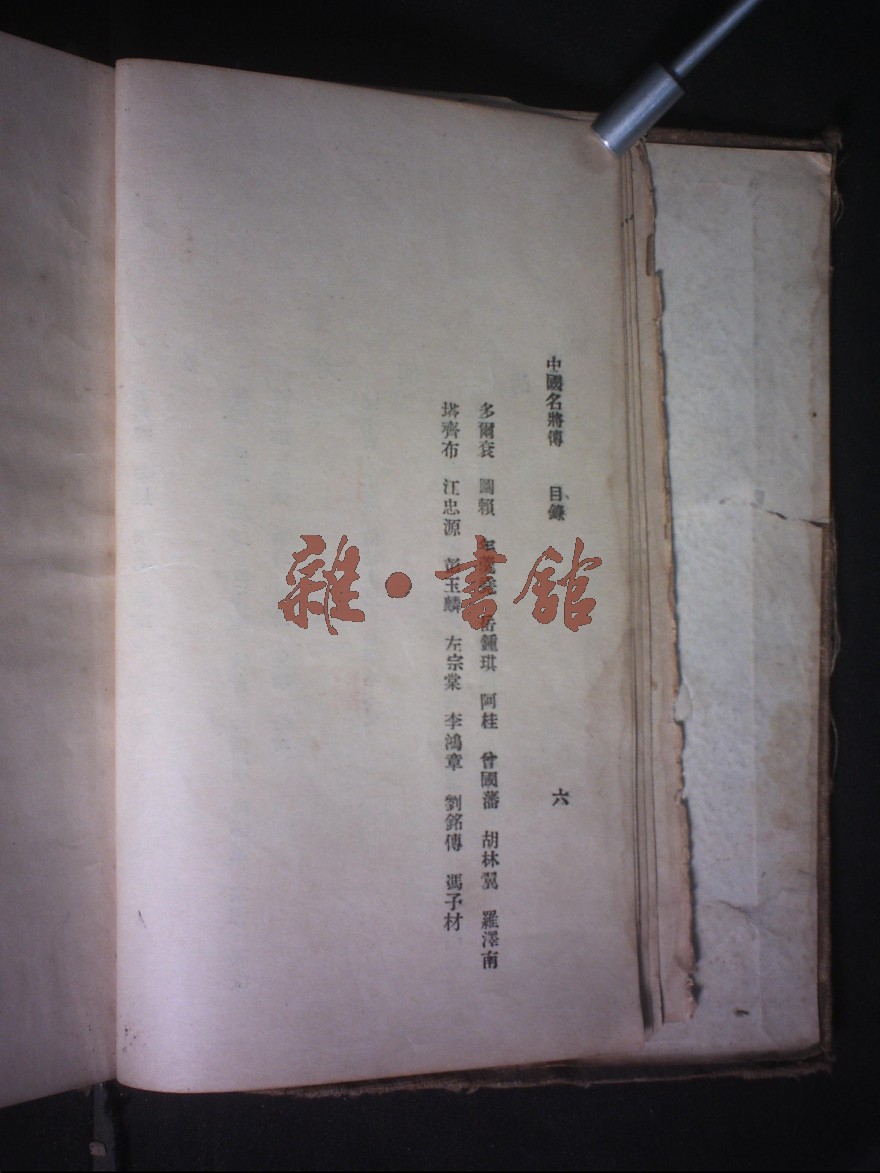 中國名將傳 目錄 六
多爾袞 圖賴 年羹堯 岳鍾琪 阿桂 曾國藩 胡林翼 羅澤南
塔齊布 江忠源 彭玉麟 左宗棠 李鴻章 劉銘傳 馮子材
雜·書館